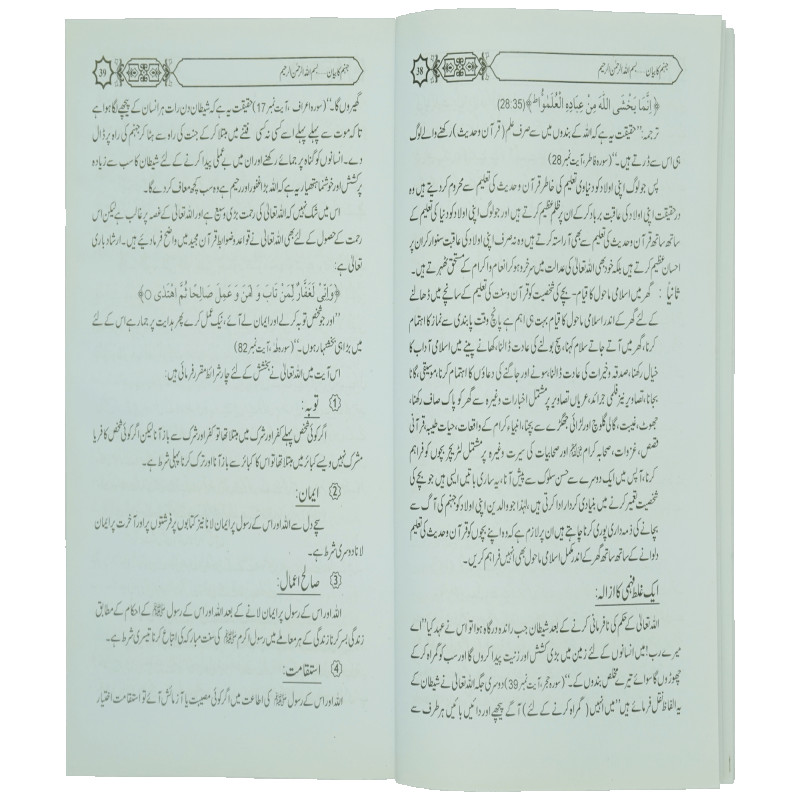 38
جہنم کا بیان....بسم اللہ الرحمٰن الرحیم
﴿ اِنَّمَا يَخْشَى اللّٰهَ مِنْ عِبَادِهِ الْعُلَمٰٓؤُا ط ﴾(28:35)
ترجمہ: ”حقیقت یہ ہے کہ اللہ کے بندوں میں سے صرف علم (قرآن وحدیث) رکھنے والے لوگ
ہی اس سے ڈرتے ہیں۔“(سورہ فاطر، آیت نمبر 28)
پس جو لوگ اپنی اولاد کو دنیاوی تعلیم کی خاطر قرآن وحدیث کی تعلیم سے محروم کر دیتے ہیں وہ
درحقیقت اپنی اولاد کی عاقبت برباد کر کے ان پر ظلم عظیم کرتے ہیں اور جو لوگ اپنی اولاد کو دنیا کی تعلیم کے
ساتھ ساتھ قرآن وحدیث کی تعلیم سے بھی آراستہ کرتے ہیں وہ نہ صرف اپنی اولاد کی عاقبت سنوار کر ان پر
احسان عظیم کرتے ہیں بلکہ خود بھی اللہ تعالیٰ کی عدالت میں سرخرو ہو کر انعام واکرام کے مستحق ٹھہرتے ہیں۔
ثانیاً : گھر میں اسلامی ماحول کا قیام- بچے کی شخصیت کو قرآن وسنت کی تعلیم کے سانچے میں ڈھالنے
کے لئے گھر کے اندر اسلامی ماحول کا قیام بہت ہی اہم ہے پانچ وقت پابندی سے نماز کا اہتمام
کرنا، گھر میں آتے جاتے سلام کہنا، سچ بولنے کی عادت ڈالنا، کھانے پینے میں اسلامی آداب کا
خیال رکھنا، صدقہ وخیرات کی عادت ڈالنا، سونے اور جاگنے کی دعاؤں کا اہتمام کرنا، موسیقی، گانا
بجانا، تصاویر نیز فلمی جرائد، عریاں تصاویر پر مشتمل اخبارات وغیرہ سے گھر کو پاک صاف رکھنا،
جھوٹ، غیبت، گالی گلوچ اور لڑائی جھگڑے سے بچنا، انبیاء کرام کے واقعات، حیات طیبہ، قرآنی
قصص، غزوات، صحابہ کرام ﷺ اور صحابیات کی سیرت وغیرہ پر مشتمل لٹریچر بچوں کو فراہم
کرنا، آپس میں ایک دوسرے سے حسن سلوک سے پیش آنا، یہ ساری باتیں ایسی ہیں جو بچے کی
شخصیت تعمیر کرنے میں بنیادی کردار ادا کرتی ہیں، لہٰذا جو والدین اپنی اولاد کو جہنم کی آگ سے
بچانے کی ذمہ داری پوری کرنا چاہتے ہیں ان پر لازم ہے کہ وہ اپنے بچوں کو قرآن وحدیث کی تعلیم
دلوانے کے ساتھ ساتھ گھر کے اندر مکمل اسلامی ماحول بھی انہیں فراہم کریں۔
ایک غلط فہمی کا ازالہ:
اللہ تعالیٰ کے حکم کی نافرمانی کرنے کے بعد شیطان جب راندہ درگاہ ہوا تو اس نے عہد کیا ”اے
میرے رب! میں انسانوں کے لئے زمین میں بڑی کشش اور زینت پیدا کروں گا اور سب کو گمراہ کر کے
چھوڑوں گا سوائے تیرے مخلص بندوں کے۔“(سورہ حجر، آیت نمبر 39) دوسری جگہ اللہ تعالیٰ نے شیطان کے
یہ الفاظ نقل فرمائے ہیں ”میں انہیں (گمراہ کرنے کے لئے) آگے پیچھے اور دائیں بائیں ہر طرف سے
39
جہنم کا بیان....بسم اللہ الرحمٰن الرحیم
گھیروں گا۔“(سورہ اعراف، آیت نمبر 17) حقیقت یہ ہے کہ شیطان دن رات ہر انسان کے پیچھے لگا ہوا ہے
تا کہ موت سے پہلے پہلے اسے کسی نہ کسی فتنے میں مبتلا کر کے جنت کی راہ سے ہٹا کر جہنم کی راہ پر ڈال
دے۔ انسانوں کو گناہ پر جمائے رکھنے اور ان میں بے عملی پیدا کرنے کے لئے شیطان کا سب سے زیادہ
پرکشش اور خوشنما ہتھیار یہ ہے کہ اللہ بڑا غفور اور رحیم ہے وہ سب کچھ معاف کر دے گا۔
اس میں شک نہیں کہ اللہ تعالیٰ کی رحمت بڑی وسیع ہے اور اللہ تعالیٰ کے غصہ پر غالب ہے لیکن اس
رحمت کے حصول کے لئے بھی اللہ تعالیٰ نے قواعد وضوابط قرآن مجید میں واضح فرما دیئے ہیں۔ ارشاد باری
تعالیٰ ہے:
﴿ وَاِنِّىْ لَغَفَّارٌ لِّمَنْ تَابَ وَ اٰمَنَ وَ عَمِلَ صَالِحًا ثُمَّ اهْتَدٰى ○ ﴾
”اور جو شخص توبہ کر لے اور ایمان لے آئے، نیک عمل کرے پھر ہدایت پر جما رہے اس کے لئے
میں بڑا ہی بخشنہار ہوں۔“(سورہ طہ، آیت نمبر 82)
اس آیت میں اللہ تعالیٰ نے بخشش کے لئے چار شرائط مقرر فرمائی ہیں:
① توبہ:
اگر کوئی شخص پہلے کفر اور شرک میں مبتلا تھا تو کفر اور شرک سے باز آنا لیکن اگر کوئی شخص کافر یا
مشرک نہیں ویسے کبائر میں مبتلا تھا تو اس کا کبائر سے باز آنا اور ترک کرنا پہلی شرط ہے۔
② ایمان:
سچے دل سے اللہ اور اس کے رسول پر ایمان لانا نیز کتابوں پر فرشتوں پر اور آخرت پر ایمان
لانا دوسری شرط ہے۔
③ صالح اعمال:
اللہ اور اس کے رسول پر ایمان لانے کے بعد اللہ اور اس کے رسول ﷺ کے احکام کے مطابق
زندگی بسر کرنا زندگی کے ہر معاملے میں رسول اکرم ﷺ کی سنت مبارکہ کی اتباع کرنا تیسری شرط ہے۔
④ استقامت:
اللہ اور اس کے رسول ﷺ کی اطاعت میں اگر کوئی مصیبت یا آزمائش آئے تو استقامت اختیار